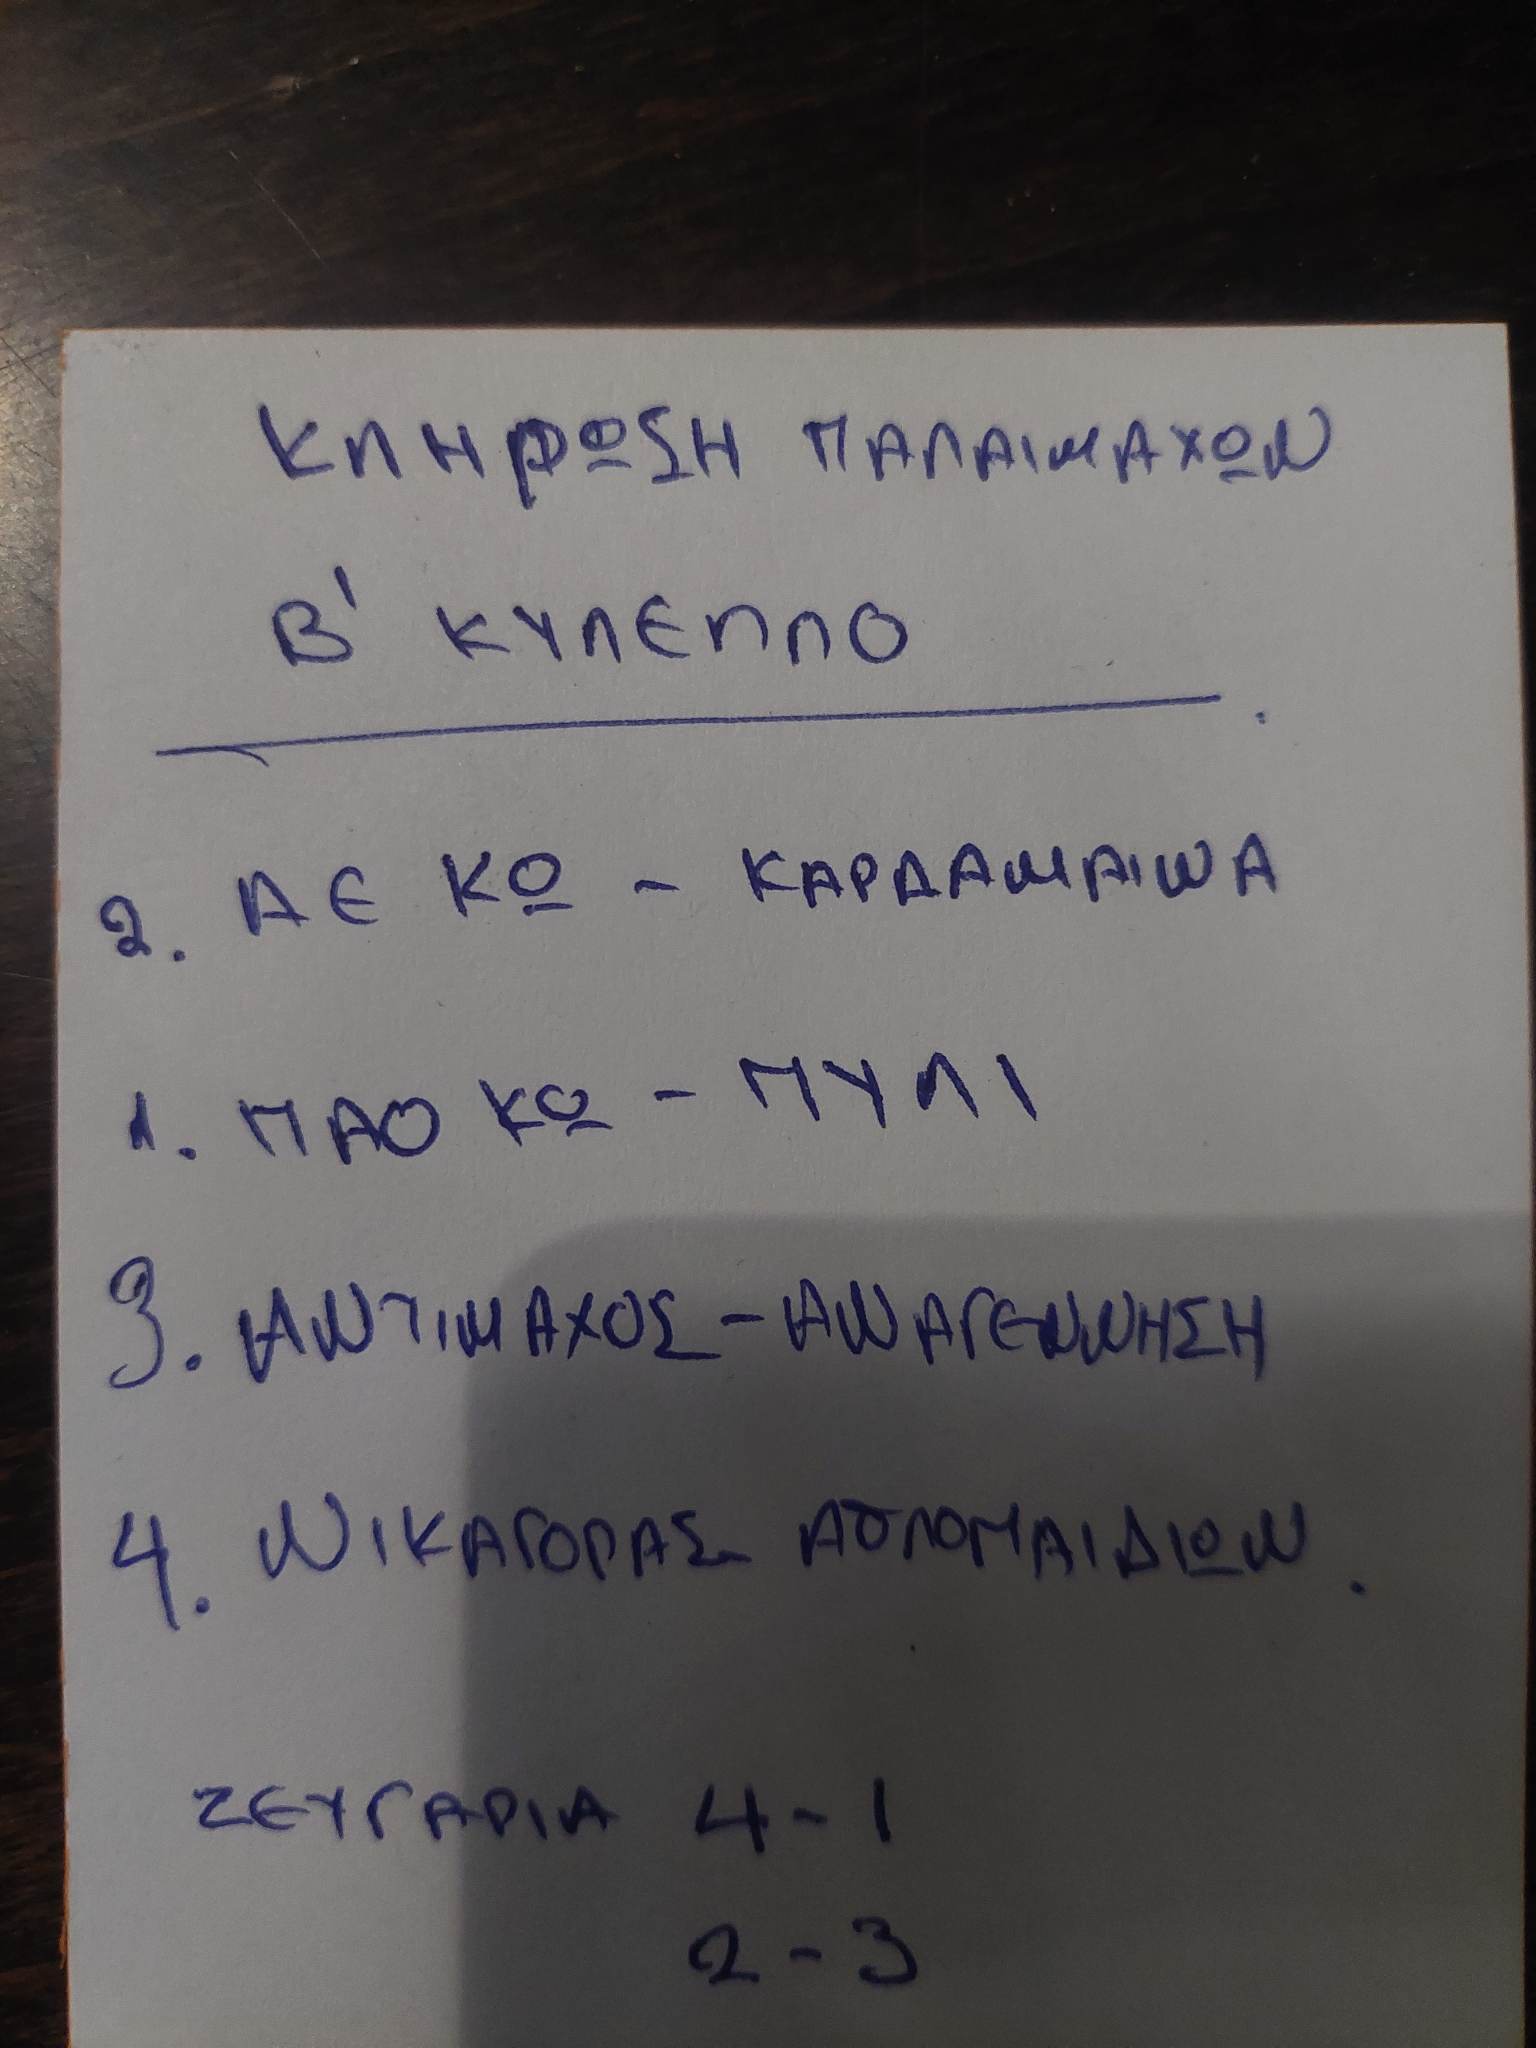 ΚΛΗΡΩΣΗ ΠΑΛΑΙΜΑΧΩΝ
Β' ΚΥΠΕΛΛΟ
2. ΑΕ ΚΩ - ΚΑΡΔΑΜΑΙΝΑ
1. ΠΑΟ ΚΩ - ΠΥΛΙ
3. ΑΝΤΙΜΑΧΟΣ - ΑΝΑΓΕΝΝΗΣΗ
4. ΝΙΚΑΓΟΡΑΣ ΑΣΚΛΗΠΙΑΔΩΝ.
ΖΕΥΓΑΡΙΑ 4 - 1
2 - 3